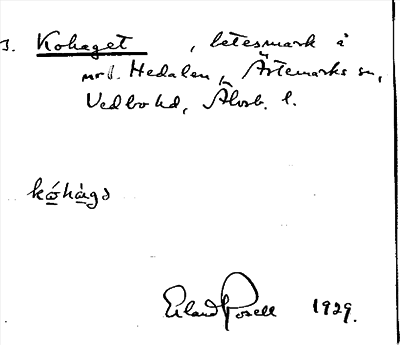 3. Kohaget, betesmark å
mrl. Hedalen, Ärtemarks sn,
Vedbo hd, Älvsb. l.
kóhàgə
Erland Rosell 1929.